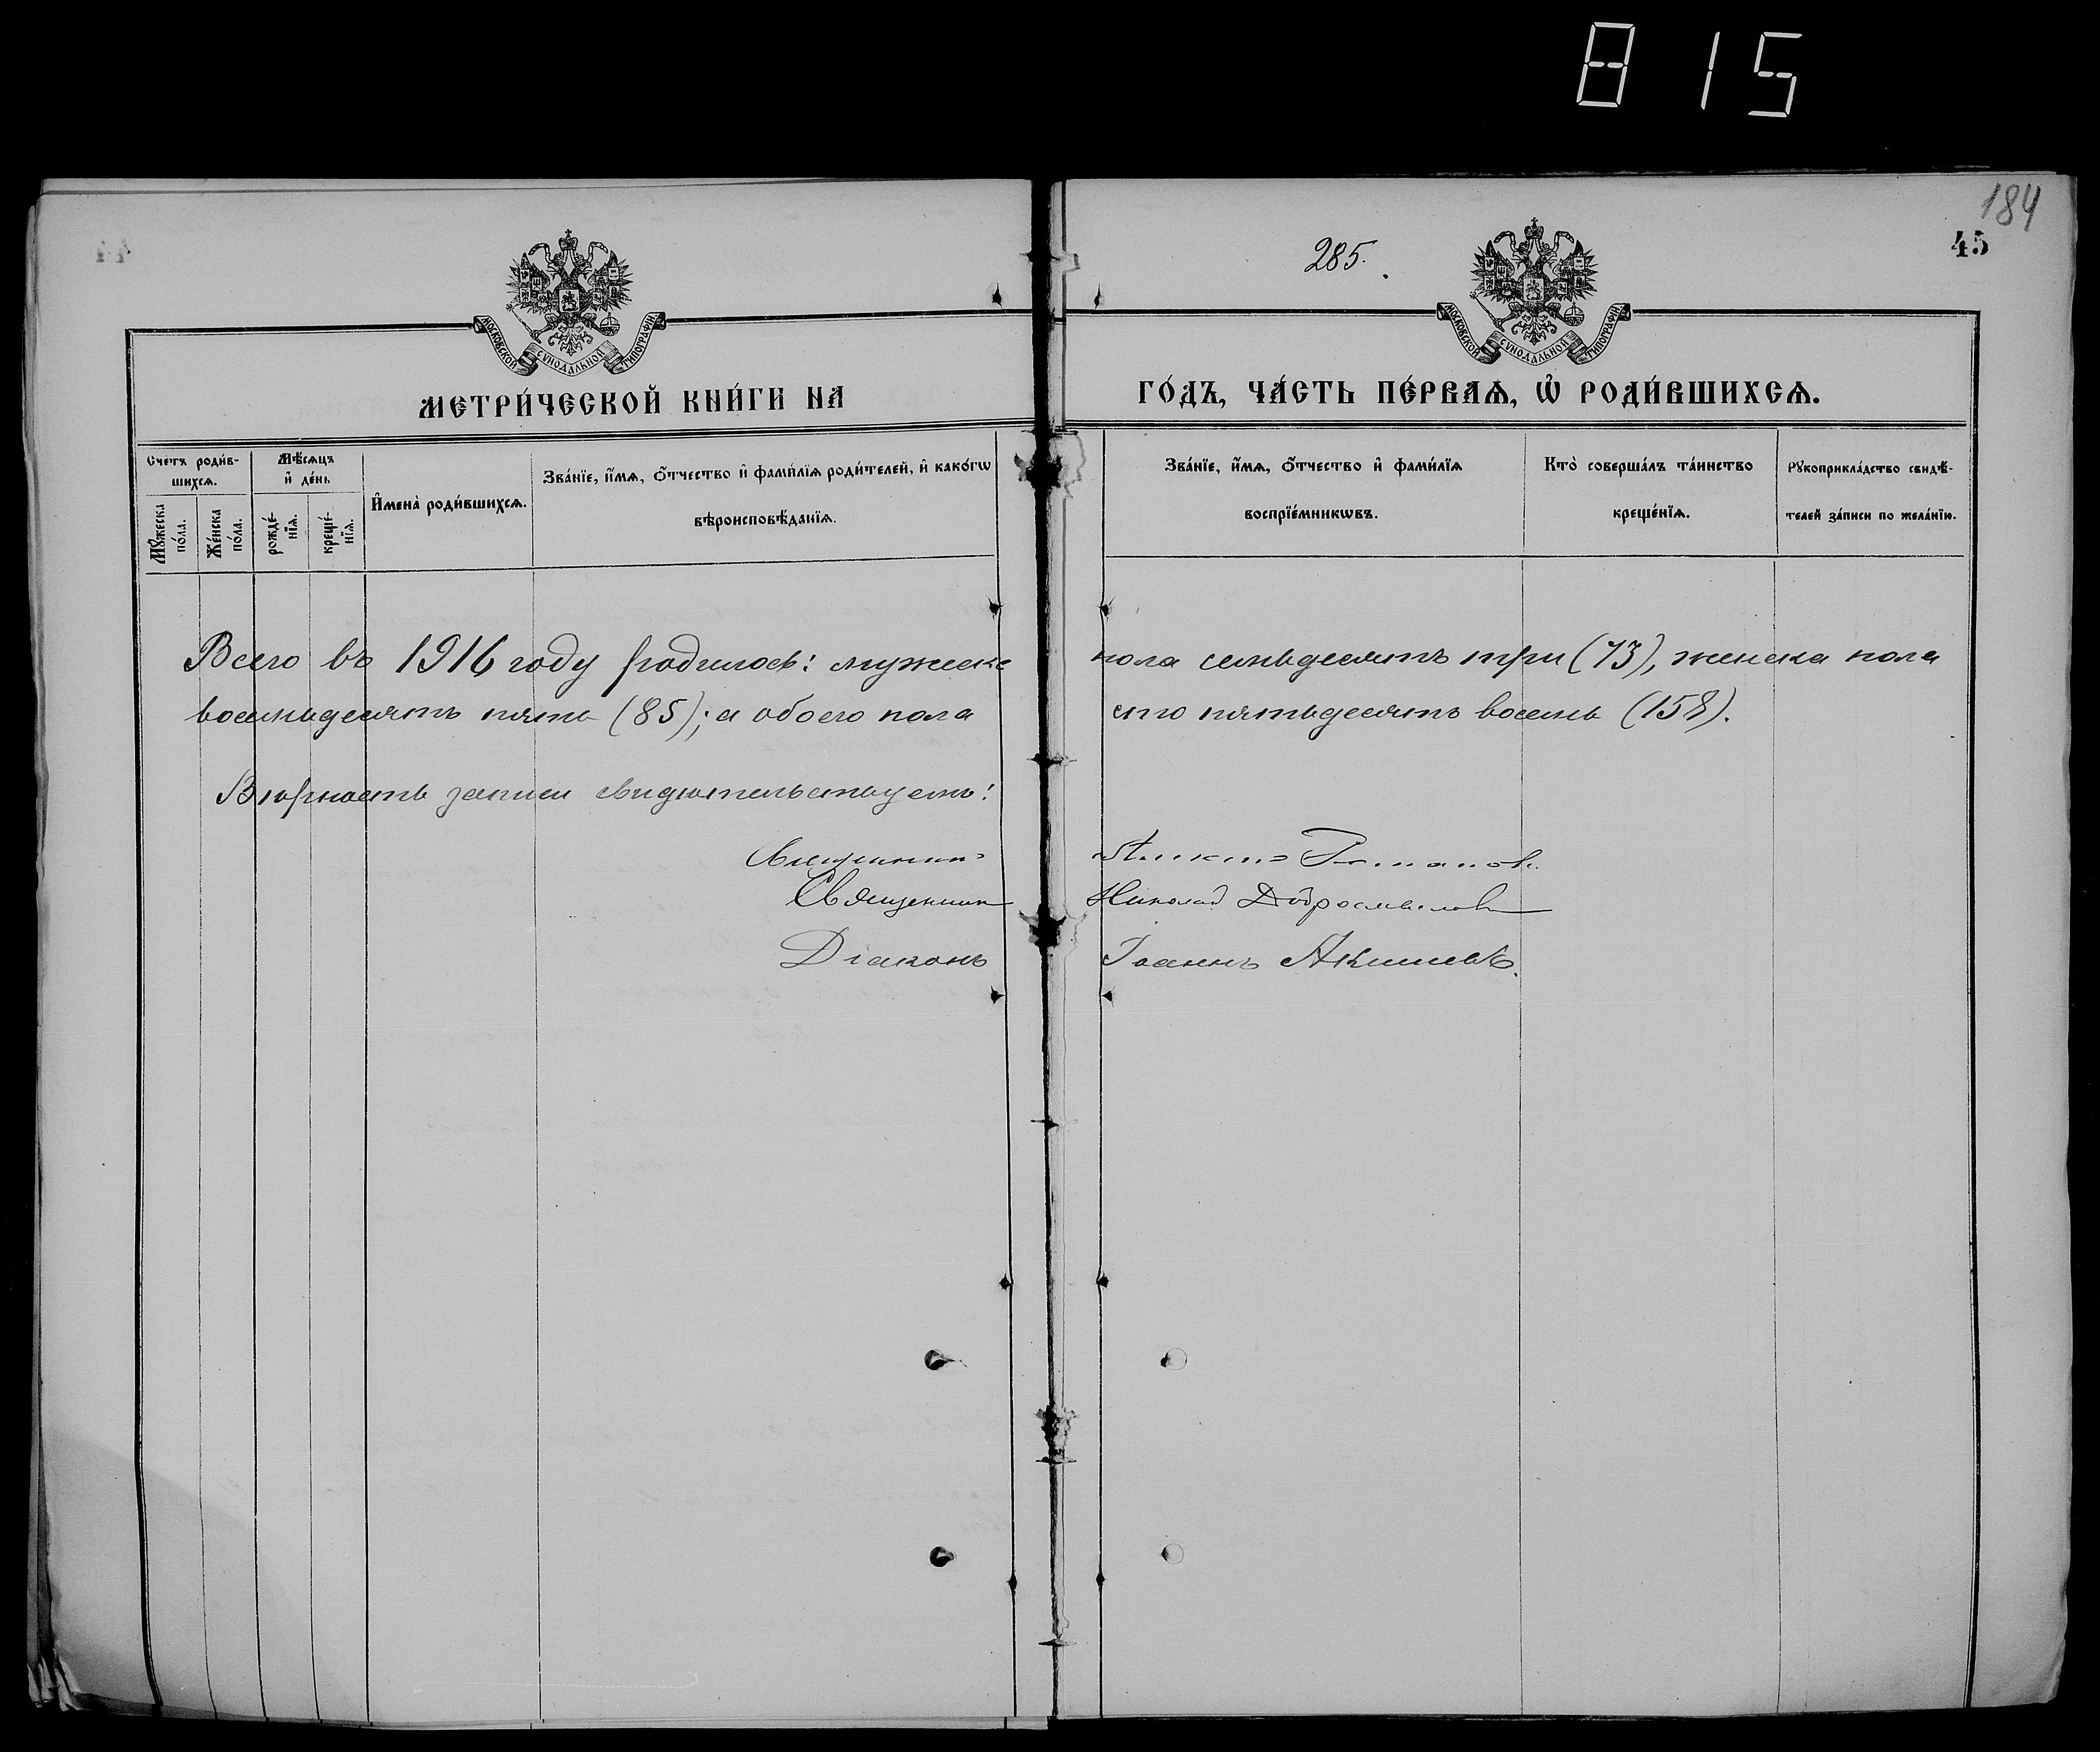 815
184
45
44
285.
МОСКОВСКОЙ СУНОДАЛЬНОЙ ТИПОГРАФІИ
МОСКОВСКОЙ СУНОДАЛЬНОЙ ТИПОГРАФІИ
МЕТРИ́ЧЕСКОЙ КНИ́ГИ НА ГО́ДЪ, ЧА́СТЬ ПЕ́РВАѦ, Ѡ҆ РОДИ́ВШИХСѦ.
Счетъ роди́в-
шихсѧ.
Мꙋ́жеска
по́ла.
Же́нска
по́ла.
Мѣ́сѧцъ
и҆ де́нь
рожде́-
нїѧ.
креще́-
нїѧ.
И҆мена̀ роди́вшихсѧ.
Зва́нїе, и҆́мѧ, ѻ҆́тчество и҆ фами́лїѧ роди́телей, и҆ како́гѡ
вѣроисповѣ́данїѧ.
Зва́нїе, и҆́мѧ, ѻ҆́тчество и҆ фами́лїѧ
воспрїе́мникѡвъ.
Кто̀ соверша́лъ та́инство
креще́нїѧ.
Рꙋкоприкла́дство свидѣ́-
телей за́писи по жела́нїю.
Всего въ 1916 году родилось: мужеска пола семьдесятъ три (73), женска пола
восемьдесятъ пять (85); а обоего пола сто пятьдесятъ восемь (158).
Вѣрность записи свидѣтельствуемъ:
Священникъ
Священникъ Николай Добросмысловъ
Діаконъ Іоаннъ Акишевъ.